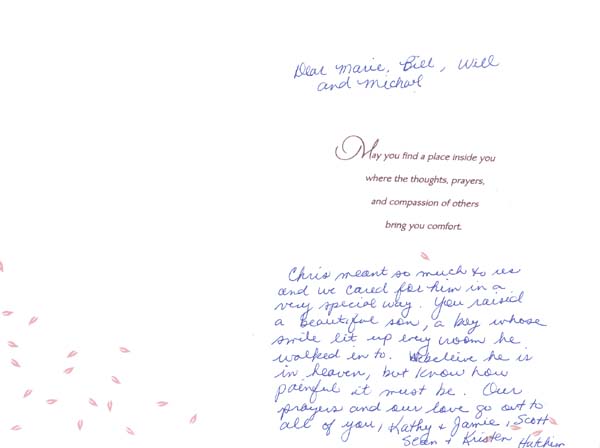 Dear Marie, Bill, Will
and Michael
May you find a place inside you
where the thoughts, prayers,
and compassion of others
bring you comfort.
Chris meant so much to us
and we cared for him in a
very special way. You raised
a beautiful son, a boy whose
smile lit up every room he
walked in to. We beleive he is
in heaven, but know how
painful it must be. Our
prayers and our love go out to
all of you, Kathy & Jamie, Scott
Sean & Kristen